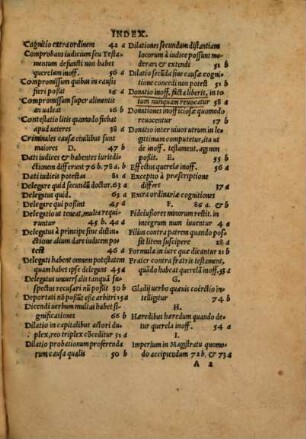 INDEX.
Cognitio extraordinem 42 a
Comprobans iudicium seu Testa-
mentum defuncti non babet
querelam inoff. 50 b
Compromissum quibus in causis
fieri possit 51 a
Compromissum super alimentis
an ualeat 66 b
Contestatio litis quomodo fiebat
apud ueteres 38 a
Criminales causæ ciuilibus sunt
maiores 47 b
D.
Dati iudices & habentes iurisdi-
ctionem differunt 76 b. 78 a.
Dati iudicis potestas 81 a
Delegare quid secundū doctor. 63 a
Delegatus quid. 61 a
Delegare qui possint 45 a
Delegatio ut teneat, multa requi-
runtur 45 b. 40 a
Delegatus à principe sine distin-
ctione alium dare iudicem po-
test 46 a
Delegati habent omnem potestatem
quam babet ipse delegans 45 a
Delegatus uniuersalis tanquā su-
spectus recusari nō possit 30 b
Deportati nō possūt esse arbitri 55 a
Dicendi uerbum multas babet si-
gnificationes 66 b
Dilatio in capitalibus actori du-
plex, reo triplex cōceditur 31 a
Dilatio probationum proferenda
rum causa qualis 50 b
Dilationes secundum distantiam
locorum à iudice possunt mode-
rari & extendi 51 b
Dilatio se semel siue causæ cognitio
ne concedi non potest 51 b
Donatio inoff. ficta aliberis, in to-
tum nunquam reuocatur 58 a
Donationes inofficiosæ quomodo
reuocentur 57 b
Donatio inter uiuos utrum in le-
gittimam computetur, ita ut
de inoff. testament. agi nom
possit. 55 b
E.
Effectus querelæ inoff. 56 a
Exceptio à præscriptione
differt 37 a
Extra ordinariæ cognitiones
86 a & b
F.
Fideiussores minorum restit. in
integrum num iuuentur 4 a
Filius contra patrem quando pos
sit litem suscipere 28 a
Formula in iure que dicantur 21 b
Frater contra fratris testament.
quādo habeat querelā inoff. 53 a
G.
Gladij uerbo quæuis coërctio in-
telligitur 74 b
H.
Hæredibus hæredum quando de-
tur querela inoff. 54 a
I.
Imperium in Magistratu quomo-
do accipiendum 72 b. & 73 a
A 2